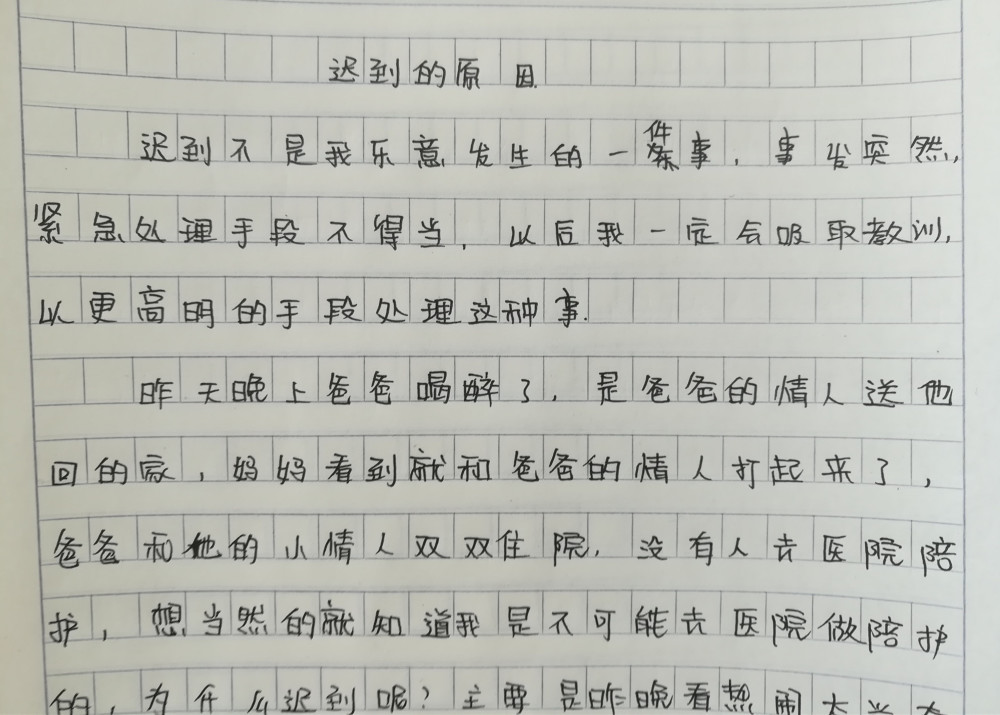 迟到的原因
迟到不是我乐意发生的一件事，事发突然，
紧急处理手段不得当，以后我一定会吸取教训，
以更高明的手段处理这种事.
昨天晚上爸爸喝醉了，是爸爸的情人送他
回的家，妈妈看到就和爸爸的情人打起来了，
爸爸和他的小情人双双住院，没有人去医院陪
护，想当然的就知道我是不可能去医院做陪护
的，为什么迟到呢？主要是昨晚看热闹